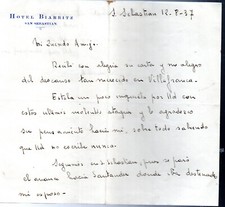 HOTEL BIARRITZ
SAN SEBASTIAN
S. Sebastian 12-8-37
Mi querido Amigo.
Recibo con alegria su carta y me alegro
del descanso tan merecido en Villafranca.
Estaba un poco inquieto por Vd con
estos ultimos violentos ataques y le agradezco
su pensamiento hacia mi, sobre todo sabiendo
que Vd no escribe nunca.
Seguimos en S. Sebastian pero se paró
el avance hacia Santander donde
mi esposo.